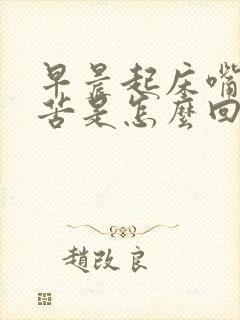 早晨起床嘴
苦是怎麼回
趙改良